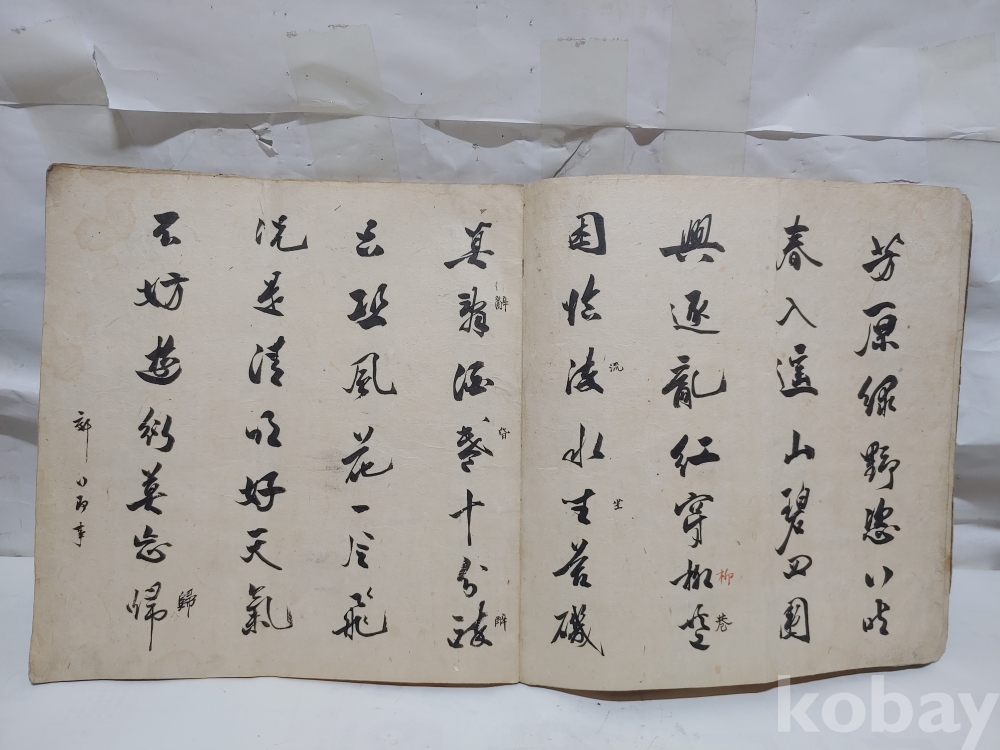 芳原綠野恣行時
春入遙山碧四圍
興逐亂紅穿柳巷
柳
巷
困臨流水坐苔磯
流
坐
莫辭酒盞十分醉
辭
醉
只恐風花一片飛
況是清明好天氣
不妨遊衍莫忘歸
歸
郊行即事
kobay